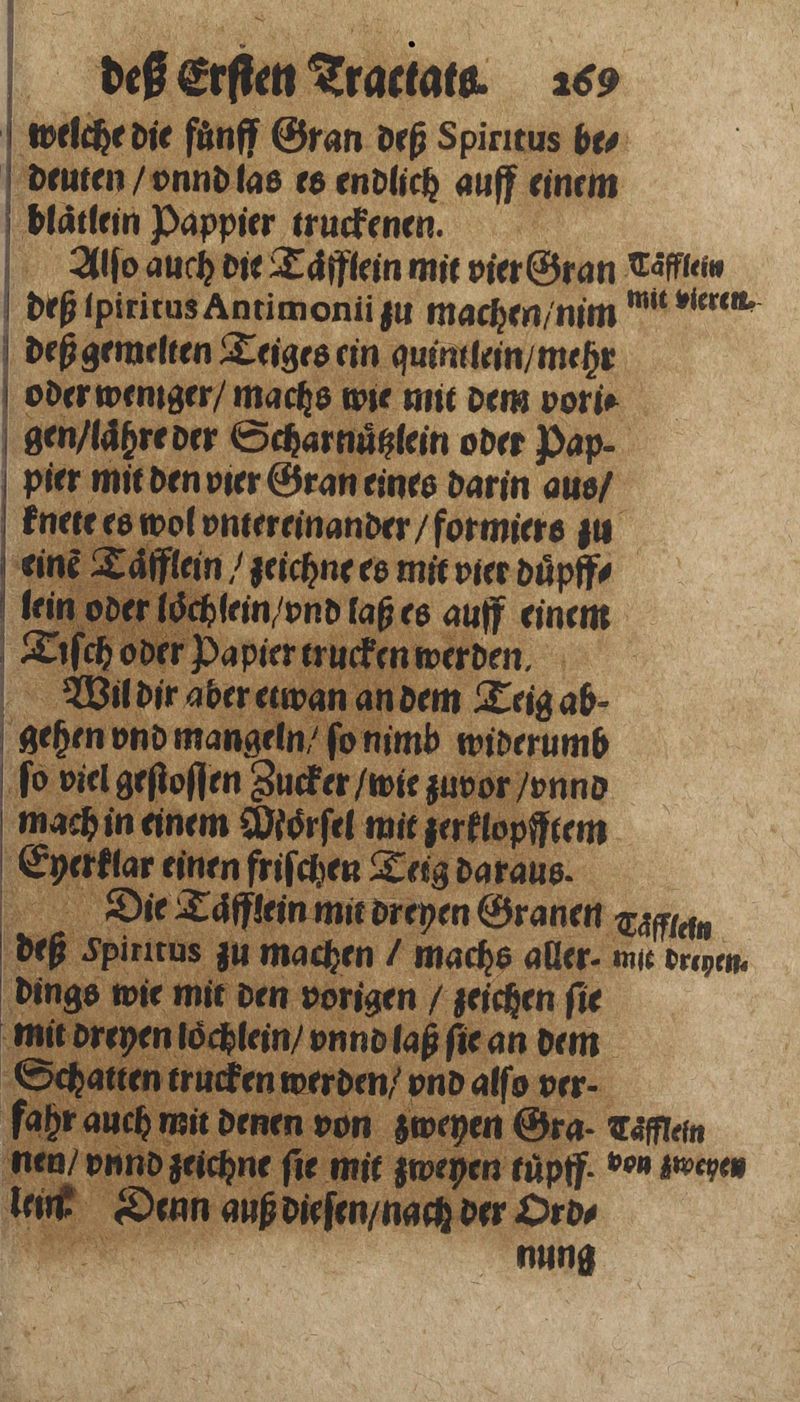 deß Ersten Tractats. 269
welche die fünff Gran deß Spiritus be-
deuten / vnnd las es endlich auff einem
blätlein Pappier truckenen.
Also auch die Täfflein mit vier Gran
Täfflein
deß spiritus Antimonii zu machen/nim
mit vieren.
deß gemelten Teiges ein quintlein/mehr
oder weniger/ machs wie mit dem vori-
gen/lähre der Scharnützlein oder Pap-
pier mit den vier Gran eines darin aus/
knete es wol vntereinander / formiers zu
einẽ Täfflein / zeichne es mit vier düpff-
lein oder löchlein/vnd laß es auff einem
Tisch oder Papier trucken werden.
Wil dir aber etwan an dem Teig ab-
gehen vnd mangeln/ so nimb widerumb
so viel gestossen Zucker / wie zuvor / vnnd
mach in einem Mörsel mit zerklopfftem
Eyerklar einen frischen Teig daraus.
Die Täfflein mit dreyen Granen
Täfflein
deß Spiritus zu machen / machs aller-
mit dreyen.
dings wie mit den vorigen / zeichen sie
mit dreyen löchlein/ vnnd laß sie an dem
Schatten trucken werden/ vnd also ver-
fahr auch mit denen von zweyen Gra-
Täfflein
nen/ vnnd zeichne sie mit zweyen tüpff-
von zweyen
lein. Denn auß diesen/nach der Ord-
nung